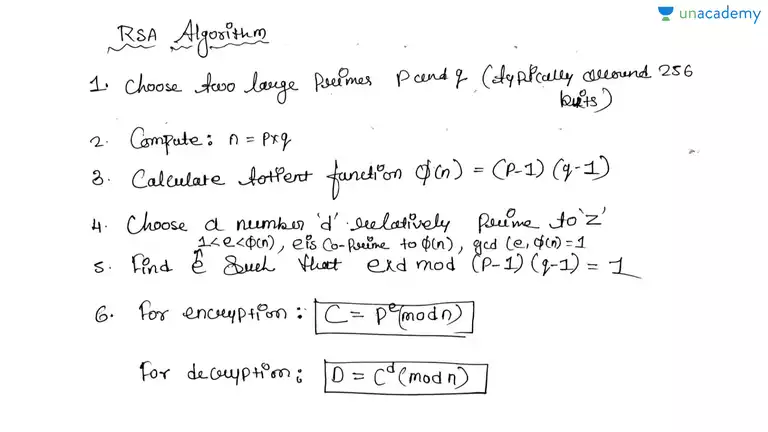 unacademy
RSA Algorithm
1. Choose two large Primes P and q (typically around 256
bits)
2. Compute: n = p×q
3. Calculate totient function ϕ(n) = (P-1) (q-1)
4. Choose a number 'd' relatively prime to 'Z'
1<e<ϕ(n), e is Co-Prime to ϕ(n), gcd (e, ϕ(n)=1
5. Find e Such that exd mod (P-1) (q-1) = 1
6. For encryption: C = P^e (mod n)
For decryption: D = C^d (mod n)